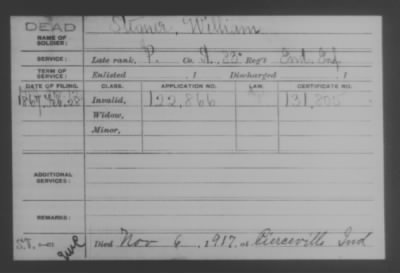 DEAD
NAME OF SOLDIER:
Steiner, William
SERVICE:
Late rank, P. Co. A, 32" Reg't Ind. Inf.
TERM OF SERVICE:
Enlisted , 1 Discharged , 1
DATE OF FILING. CLASS. APPLICATION NO. LAW. CERTIFICATE NO.
1867, Invalid, 122,866 131,805
Widow,
Minor,
ADDITIONAL SERVICES:
REMARKS:
Died Nov 6, 1917, at Pierceville Ind